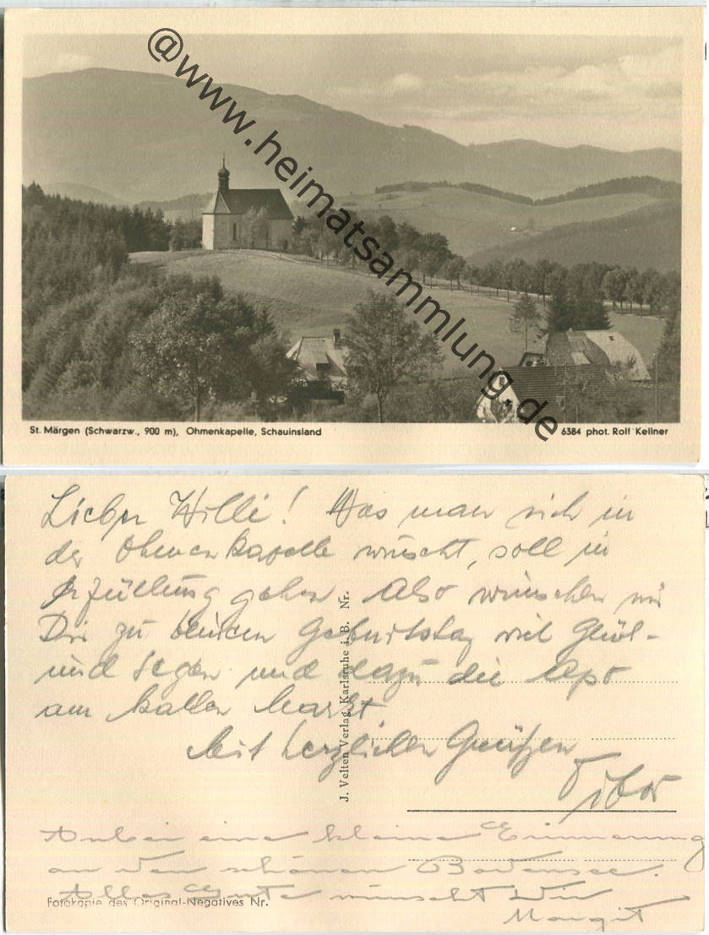 @www.heimatsammlung.de
St. Märgen (Schwarzw., 900 m), Ohmenkapelle, Schauinsland
6384 phot. Rolf Kellner
Lieber Willi! Was man sich in
der Ohmenkapelle wünscht, soll in
Erfüllung gehen. Also wünschen wir
Dir zu deinem Geburtstag viel Glück
und Segen und dazu die
am kalten Markt
Mit herzlichen Grüßen
Tibor
J. Velten Verlag, Karlsruhe i. B. Nr.
Anbei eine kleine Erinnerung
an den schönen Bodensee.
Alles Gute wünscht Dir
Margit
Fotokopie des Original-Negatives Nr.